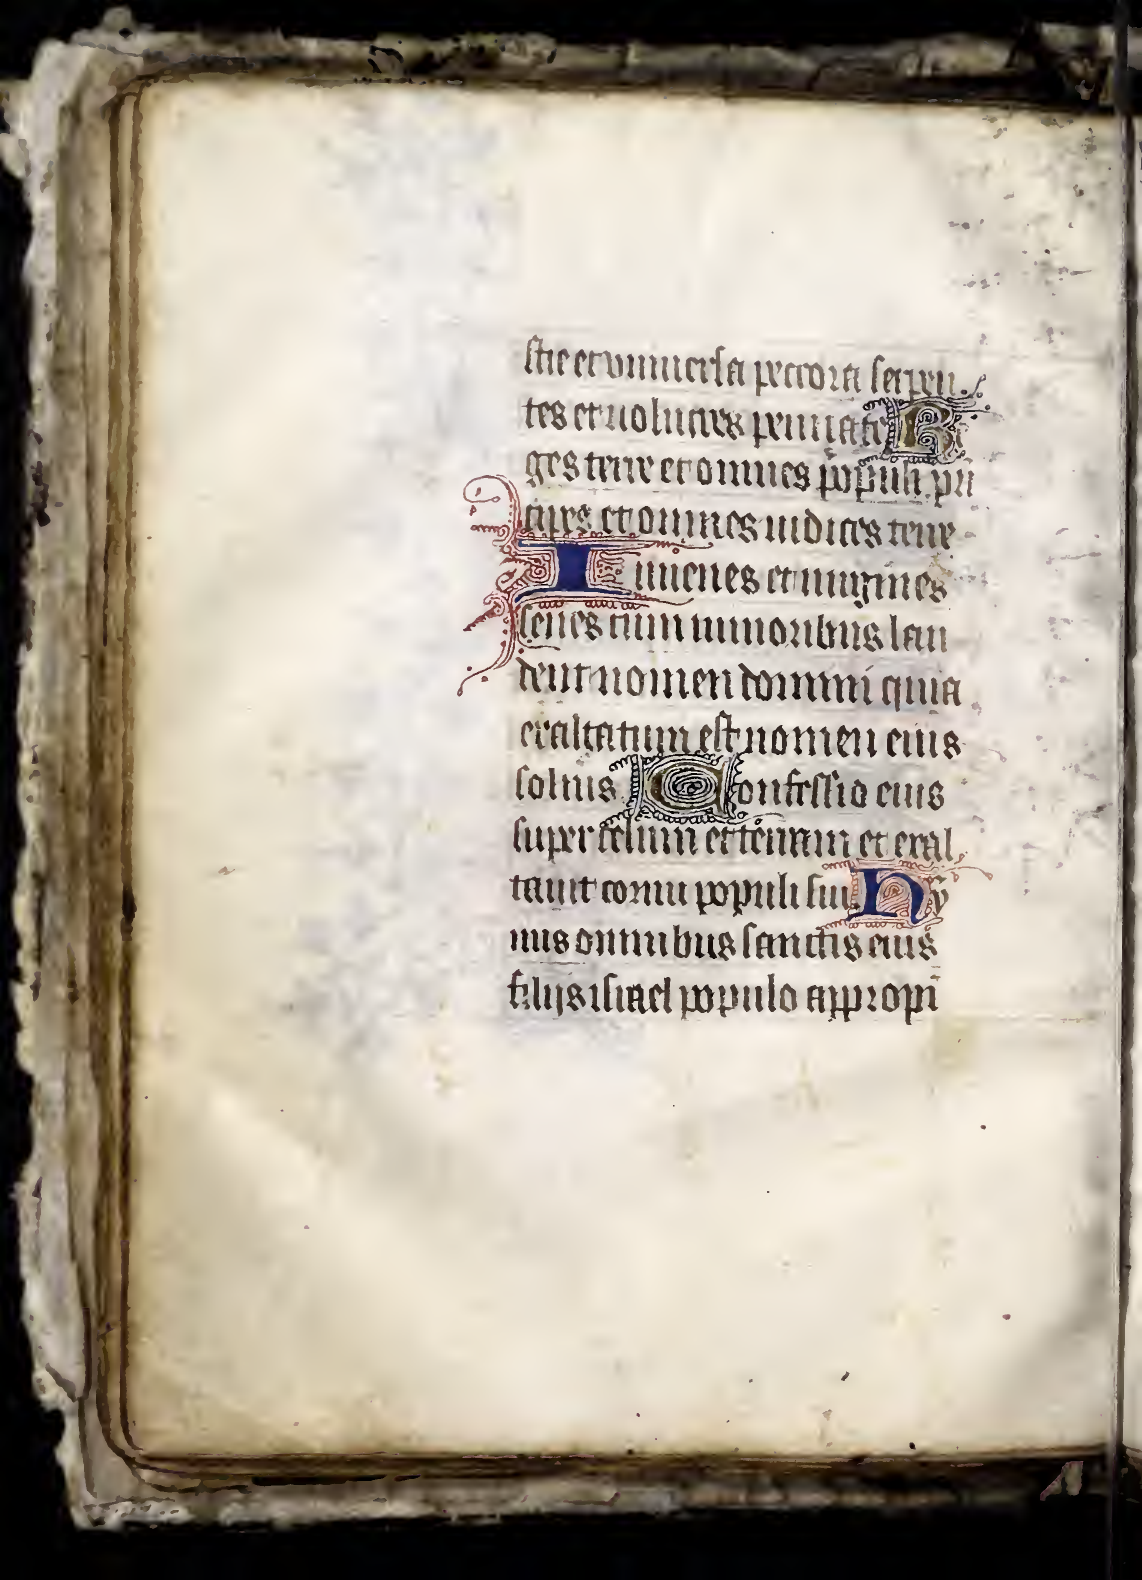 stie et uniuersa peccora serpen
tes et uolucres pennate Re
ges terre et omnes populi pri
cipes et omnes iudices terre
Iuuenes et uirgines
senes cum iunioribus lau
dent nomen domini quia
exaltatum est nomen eius
solius Confessio eius
super celum et terram et exal
tauit cornu populi sui Hy
nus omnibus sanctis eius
filijs israel populo appropī